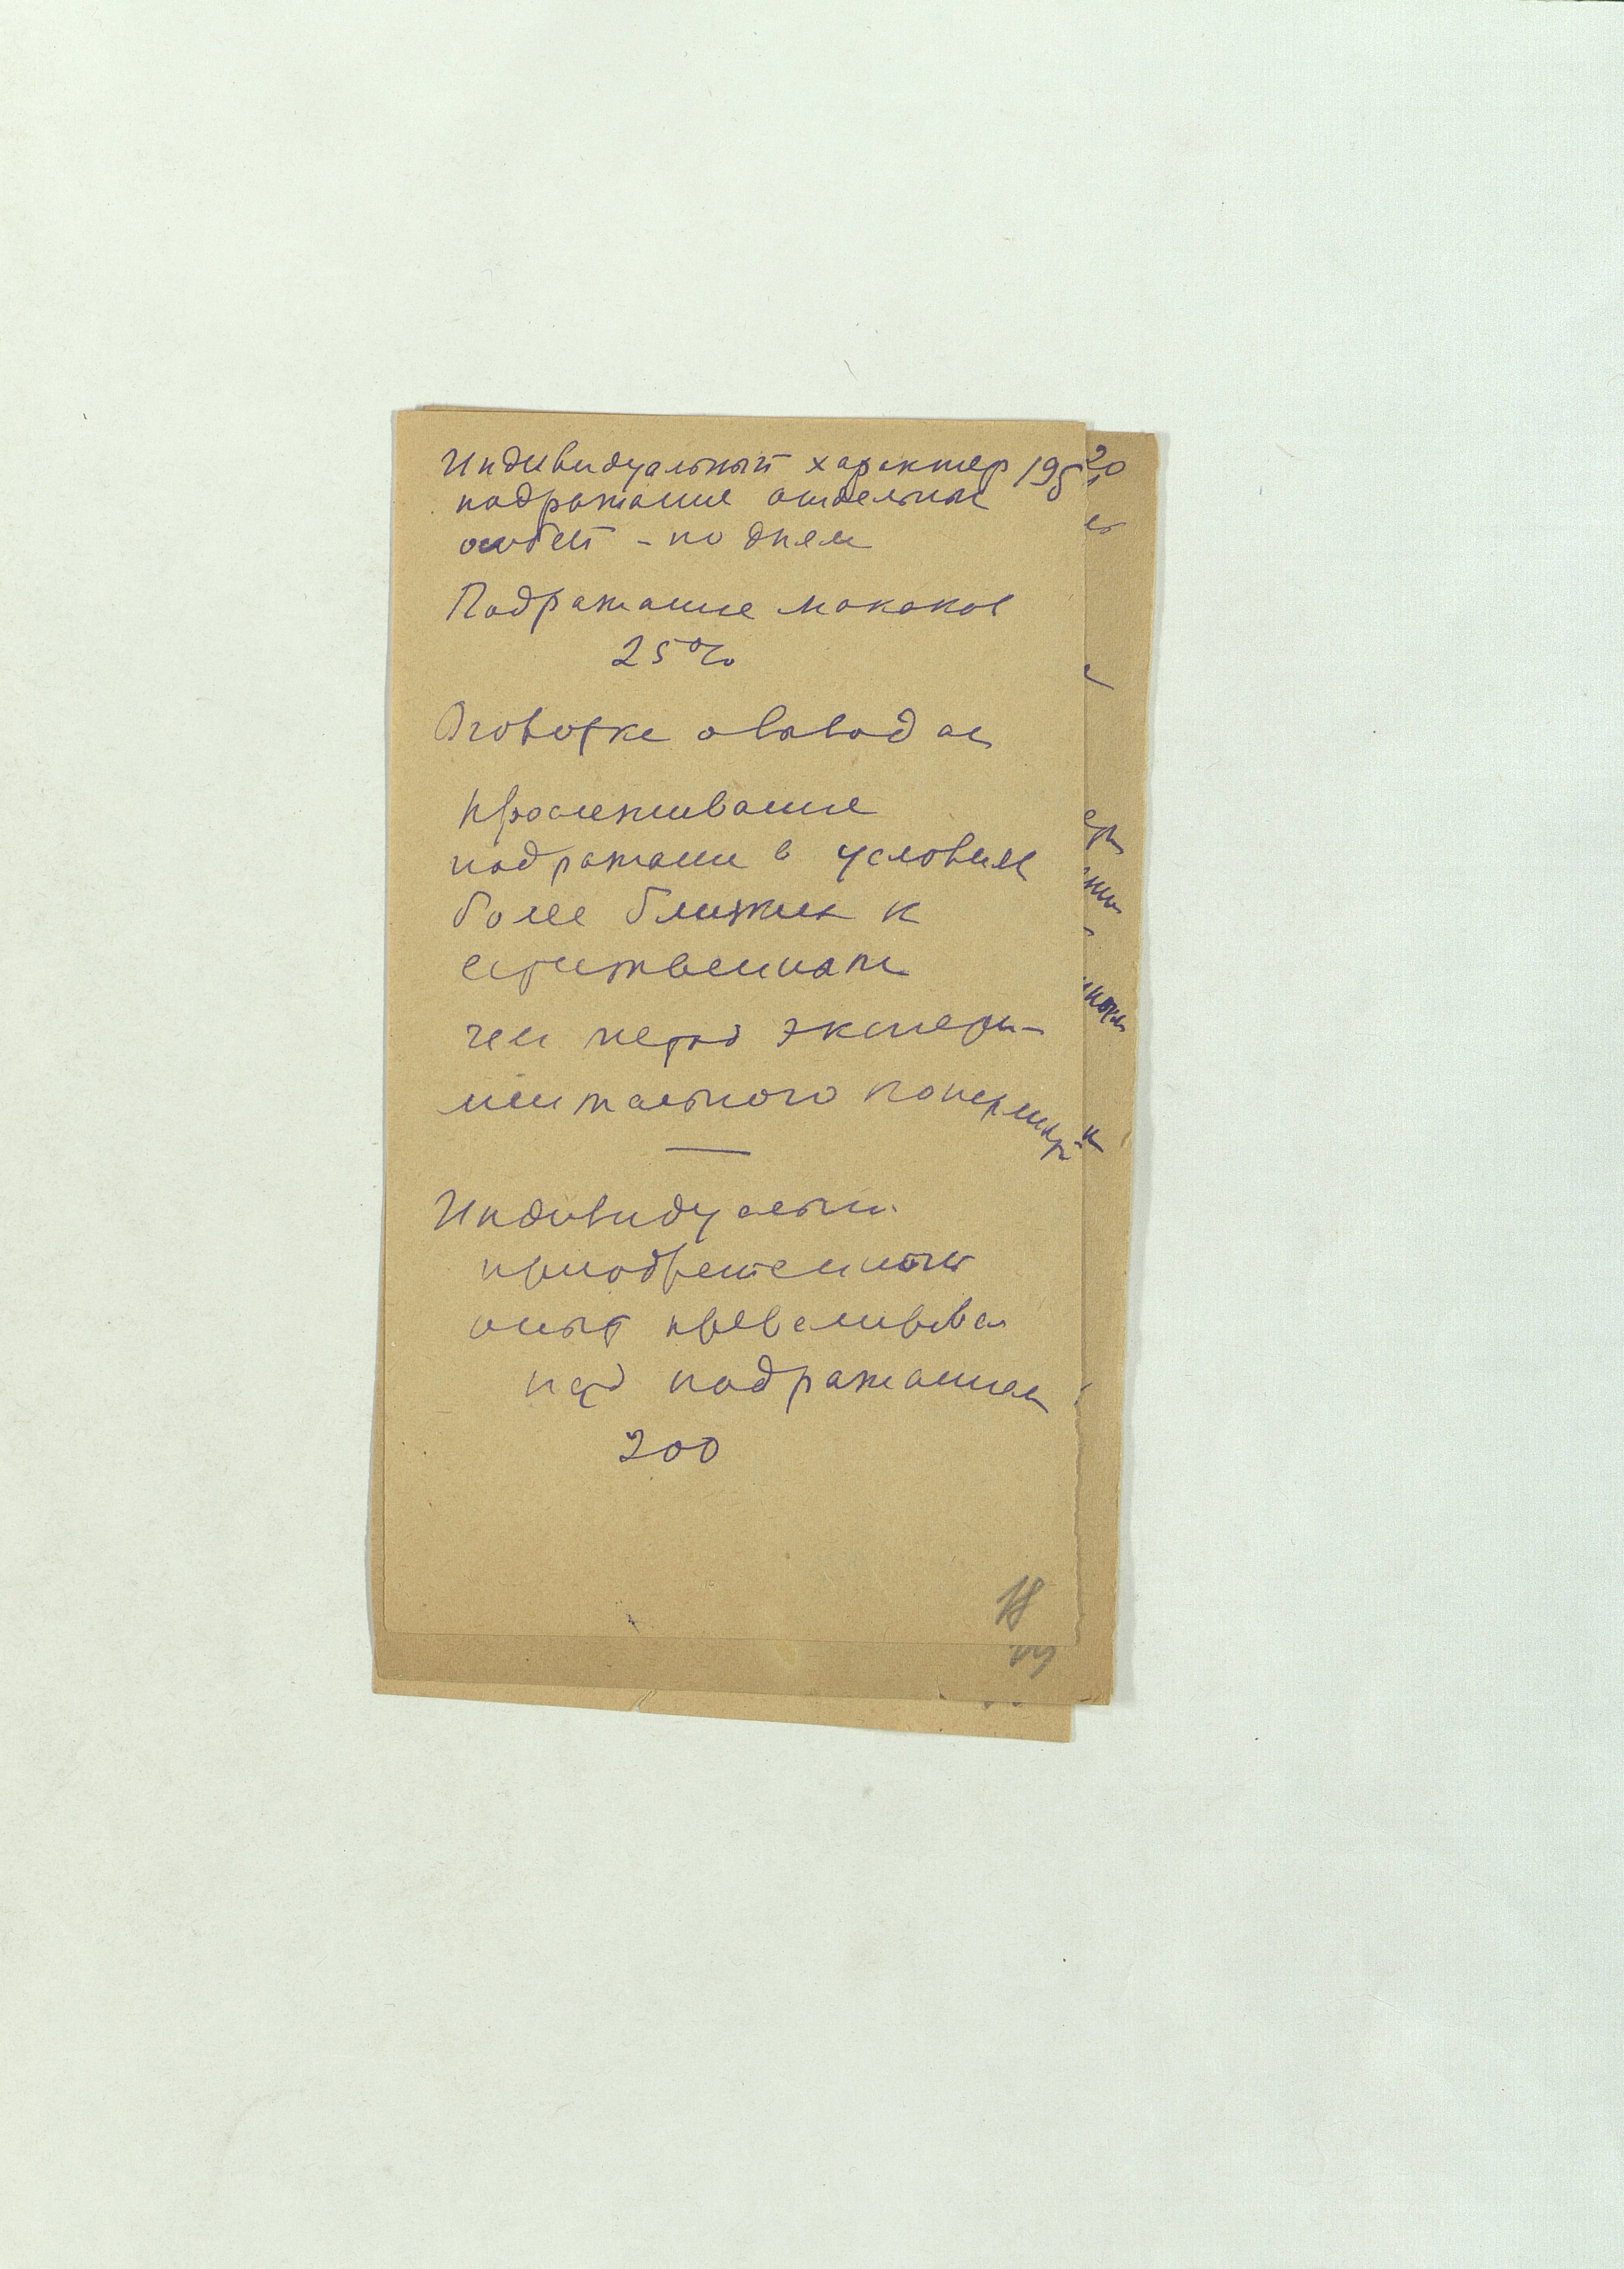 Индивидуальный характер 195
подражание отдельных
особей - по дням
Подражание макаков
25%
Оговорке о выводах
прослеживание
подражани в условиях
более близких к
естественным
чем метод экспери-
ментального
Индивидуальн.
приобретенный
опыт превалировал
над подражанием
200
18